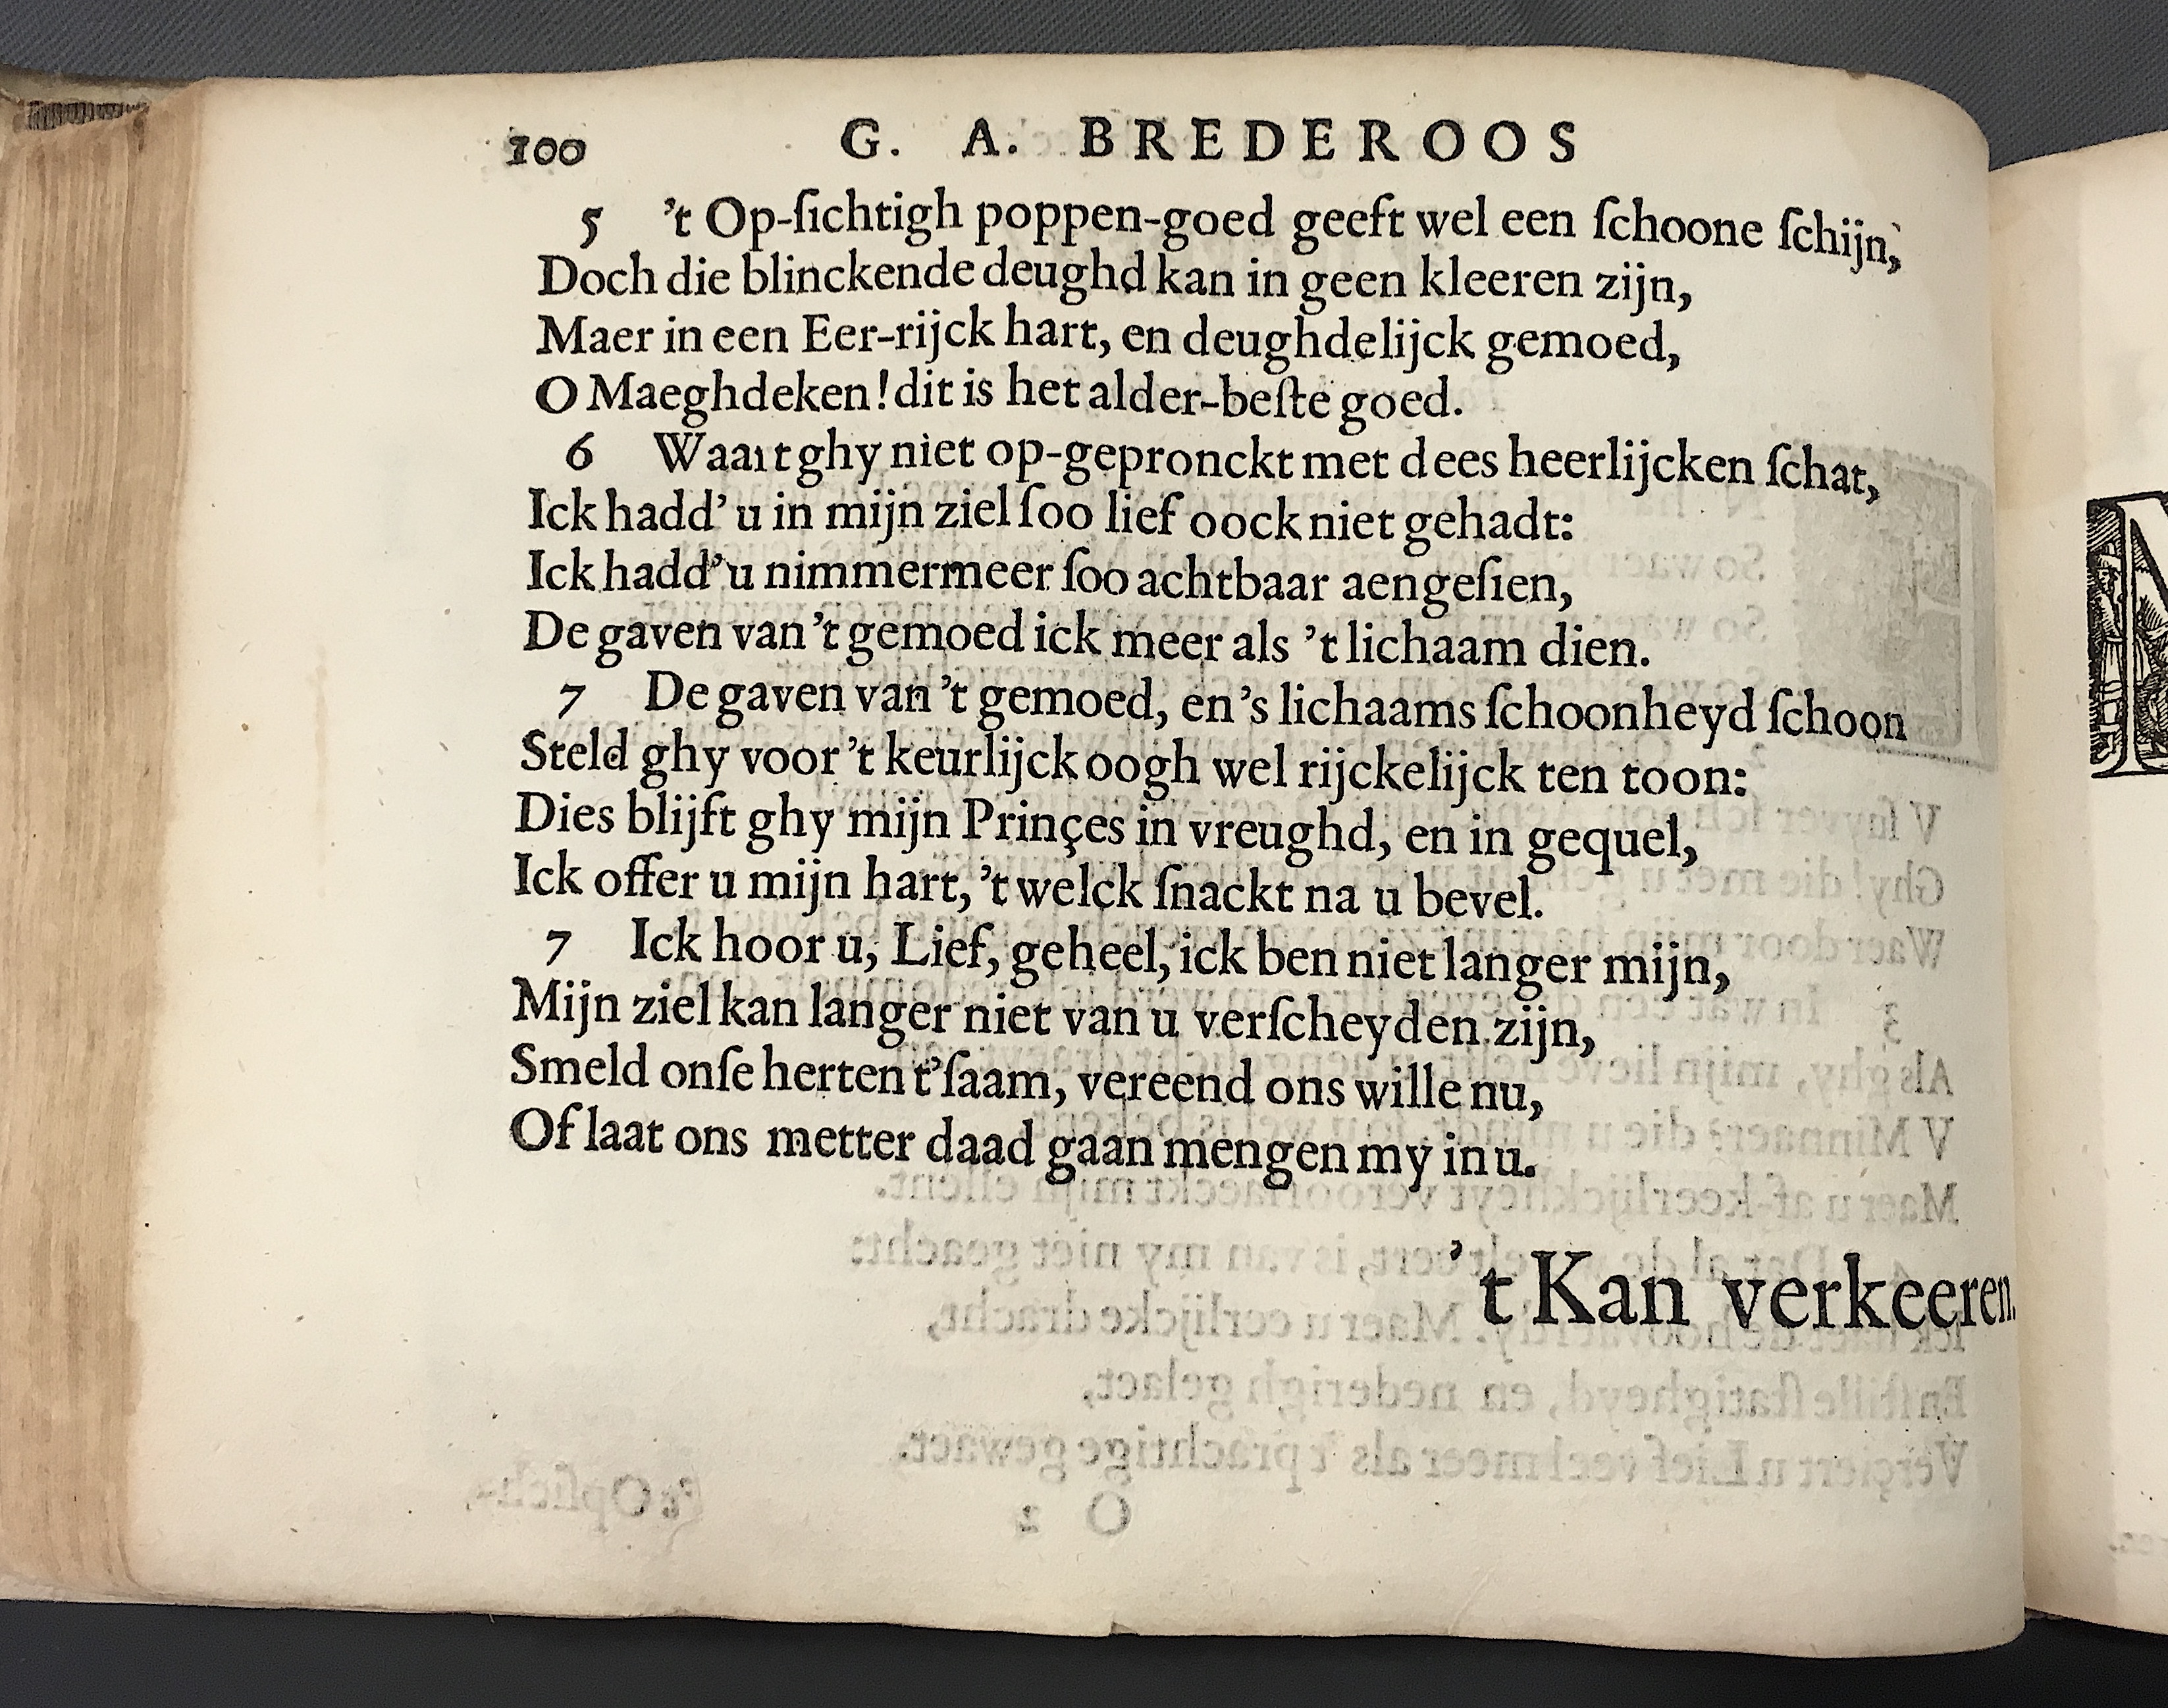 100 G. A. BREDEROOS
5 't Op-ſichtigh poppen-goed geeft wel een ſchoone ſchijn,
Doch die blinckende deughd kan in geen kleeren zijn,
Maer in een Eer-rijck hart, en deughdelijck gemoed,
O Maeghdeken! dit is het alder-beſte goed.
6 Waart ghy niet op-gepronckt met dees heerlijcken ſchat,
Ick hadd' u in mijn ziel ſoo lief oock niet gehadt:
Ick hadd' u nimmermeer ſoo achtbaar aengeſien,
De gaven van 't gemoed ick meer als 't lichaam dien.
7 De gaven van 't gemoed, en 's lichaams ſchoonheyd ſchoon
Steld ghy voor 't keurlijck oogh wel rijckelijck ten toon:
Dies blijft ghy mijn Prinçes in vreughd, en in gequel,
Ick offer u mijn hart, 't welck ſnackt na u bevel.
7 Ick hoor u, Lief, geheel, ick ben niet langer mijn,
Mijn ziel kan langer niet van u verſcheyden zijn,
Smeld onſe herten t'ſaam, vereend ons wille nu,
Of laat ons metter daad gaan mengen my in u.
't Kan verkeeren.